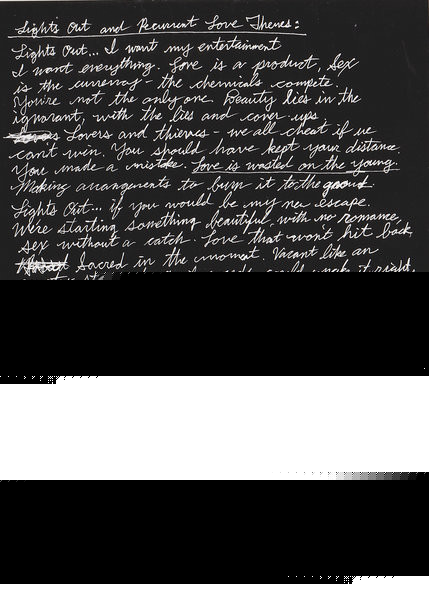 Lights Out and Recurrent Love Themes:
Lights Out... I want my entertainment
I want everything. Love is a product, Sex
is the currency - the chemicals compete.
You're not the only one. Beauty lies in the
ignorant, with the lies and cover ups.
Lovers and thieves - we all cheat if we
can't win. You should have kept your distance.
You made a mistake. Love is wasted on the young.
Making arrangements to burn it to the ground
Lights Out... if you would be my new escape.
We're starting something beautiful, with no romance,
sex without a catch. Love that won't hit back,
Sacred in the moment. Vacant like an
it right,